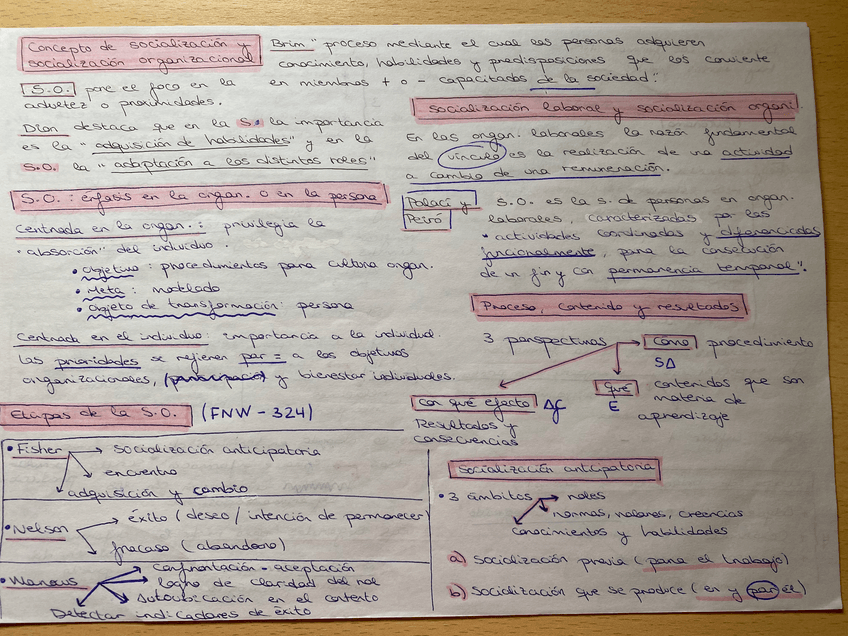 Concepto de socialización y
socialización organizacional
Brim " proceso mediante el cual las personas adquieren
conocimiento, habilidades y predisposiciones que los convierte
en miembros + o - capacitados de la sociedad".
S.O. pone el foco en la
adultez o proximidades.
Dlan destaca que en la S. la importancia
es la "adquisición de habilidades" y en la
S.O. la "adaptación a los distintos roles"
Socialización laboral y socialización organi.
En las organ. laborales la razón fundamental
del vínculo es la realización de una actividad
a cambio de una remuneración.
S.O.: énfasis en la organ. o en la persona
Centrada en la organ.: privilegia la
"absorción" del individuo.
• Objetivo: procedimientos para cultura organ.
• Meta: modelado
• Objeto de transformación: persona
Centrada en el individuo: importancia a la individual.
Las prioridades se refieren par = a los objetivos
organizacionales, (participació) y bienestar individuales.
Palaci y
Peiró
S.O. es la s. de personas en organ.
laborales, caracterizadas por las
"actividades coordinadas y diferenciadas
funcionalmente, para la consecución
de un fin y con permanencia temporal".
Proceso, contenido y resultados
3 perspectivas
Cómo procedimiento
S∆
Qué contenidos que son
E materia de
aprendizaje
Con qué efecto ∆f
Resultados y
consecuencias
Etapas de la S.O. (FNW - 324)
• Fisher → socialización anticipatoria
encuentro
adquisición y cambio
• Nelson → éxito (deseo / intención de permanecer)
fracaso (abandono)
• Wanous confrontación - aceptación
logro de claridad del rol
Autoubicación en el contexto
Detectar indicadores de éxito
Socialización anticipatoria
• 3 ámbitos → roles
normas, valores, creencias
conocimientos y habilidades
a) Socialización previa (para el trabajo)
b) Socialización que se produce (en y por él)